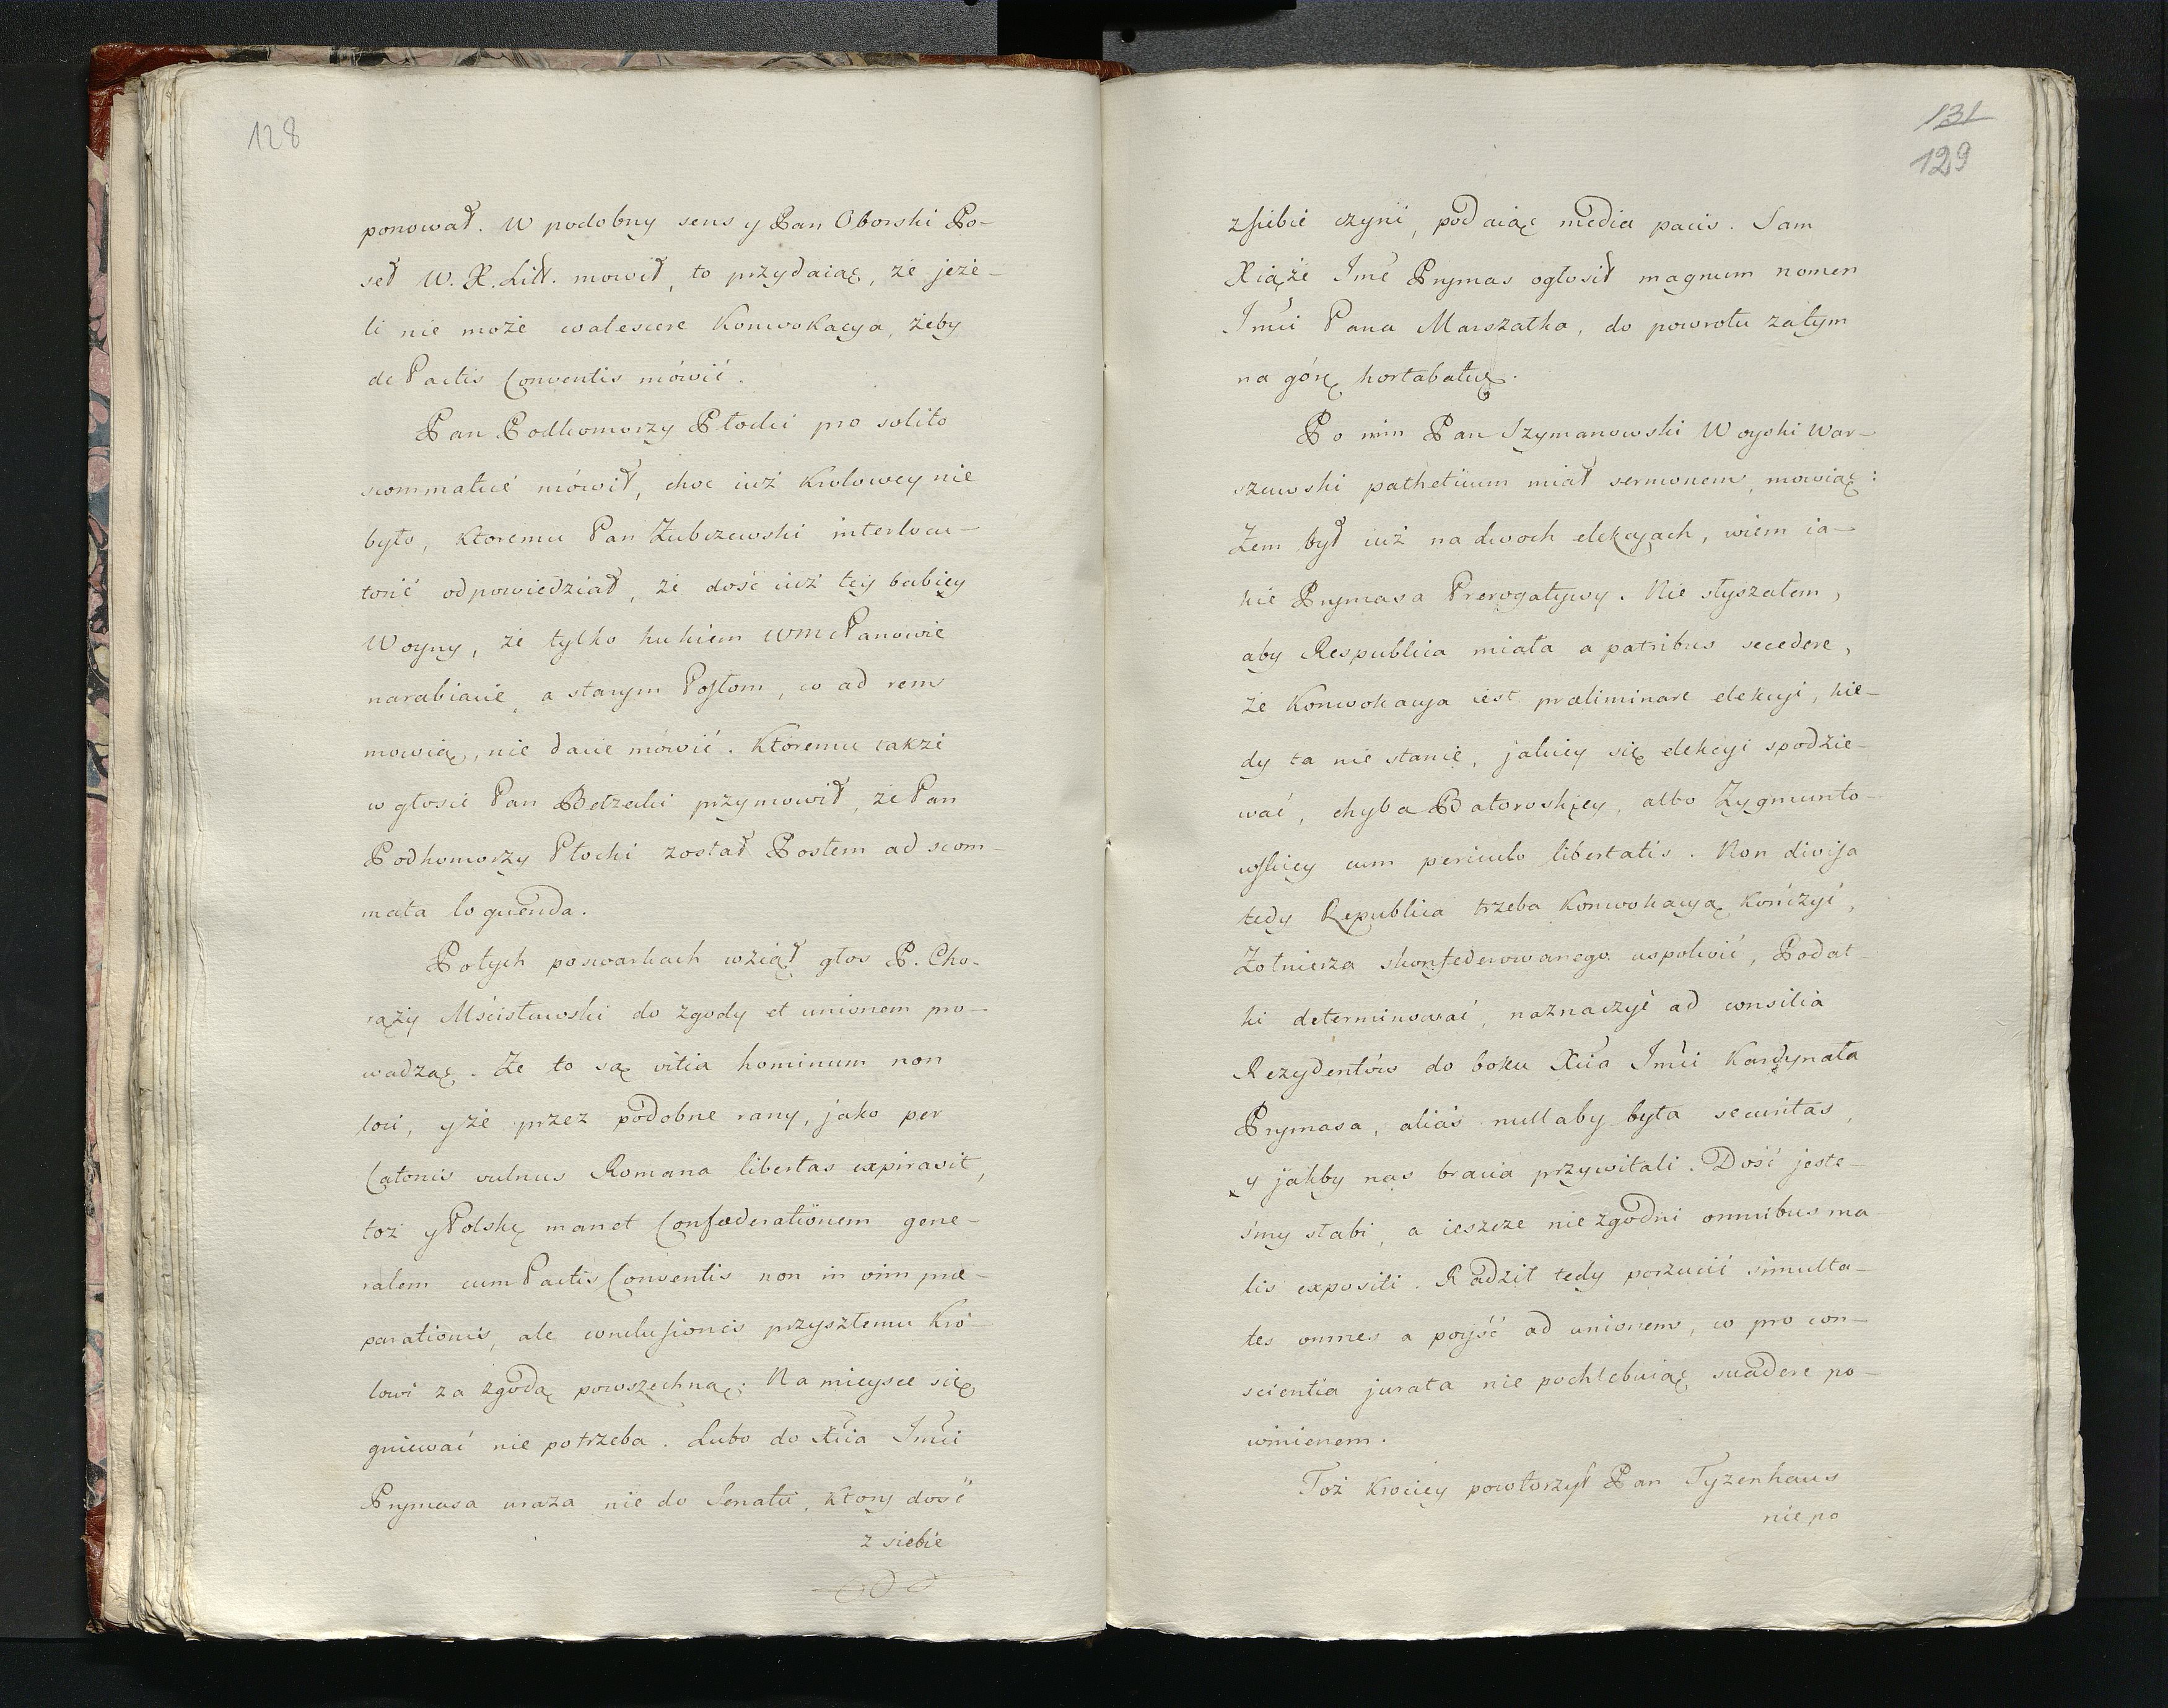 128
ponował. W podobny sens y Pan Oborski Po-
seł W. X. Litt. mowił, to przydaiąc, że jeże-
li nie może walescere Konwokacya, żeby
de Pactis Conventis mówić.
Pan Podkomorzy Płocki pro solito
scommatice mówił, choc iuż Krolowey nie
było, ktoremu Pan Zubczewski interlocu-
torié odpowiedział, że dość iuż tey babiey
Woyny, że tylko hukiem WmcPanowie
narabiacie, a starym Posłom, co ad rem
mowią, nie dacie mówić. Ktoremu także
w głosie Pan Bełzecki przymowił, że Pan
Podkomorzy Płocki został Posłem ad scom-
mata loquenda.
Po tych poswarkach wziął głos P. Cho-
rąży Mścisławski do zgody et unionem pro-
wadząc. Że to są vitia hominum non
loci, y że przez podobne rany, jako per
Catonis vulnus Romana libertas expiravit,
toż y Polskę manet Confœderationem gene-
ralem cum Pactis Conventis non in vim præ-
parationis, ale conclusioncis przyszłemu Kró-
lowi za zgodą powszechną; Na mieysce się
gniewać nie potrzeba. Lubo do Xcia Jmci
Prymasa uraza nie do Senatu, ktory dość
z siebie
131
129
z siebie czyni, podaiąc media pacis. Sam
Xiąże Jmć Prymas ogłosił magnum nomen
Jmci Pana Marszałka, do powrotu zatym
na górę hortabatur.
Po nim Pan Szymanowski Woyski War-
szawski patheticum miał sermonem, mowiąc:
Żem był iuż na dwoch elekcyach, wiem ia-
kie Prymasa Prerogatywy. Nie słyszałem,
aby Respublica miała a patribus secedere,
że Konwokacya iest præliminare elekcyi, kie-
dy ta nie stanie, jakiey się elekcyi spodzie-
wać, chyba Batoroskiey, albo Zygmunto-
wskiey cum periculo libertatis. Non divisa
tedy Republica trzeba Konwokacyą kończyć,
Żołnierza skonfederowanego uspokoić, Podat-
ki determinować, naznaczyć ad consilia
Rezydentów do boku Xcia Jmci Kardynała
Prymasa, aliàs nullaby była securitas,
y jakby nas bracia przywitali. Dość jeste-
śmy słabi, a ieszcze niezgodni omnibus ma-
lis expositi. Radzit tedy porzucić simulta-
tes omnes a poyść ad unionem, co pro con-
scientia jurata nie pochlebuiąc suadere po-
winienem.
Toż krociey powtorzył Pan Tyzenhaus
nie po